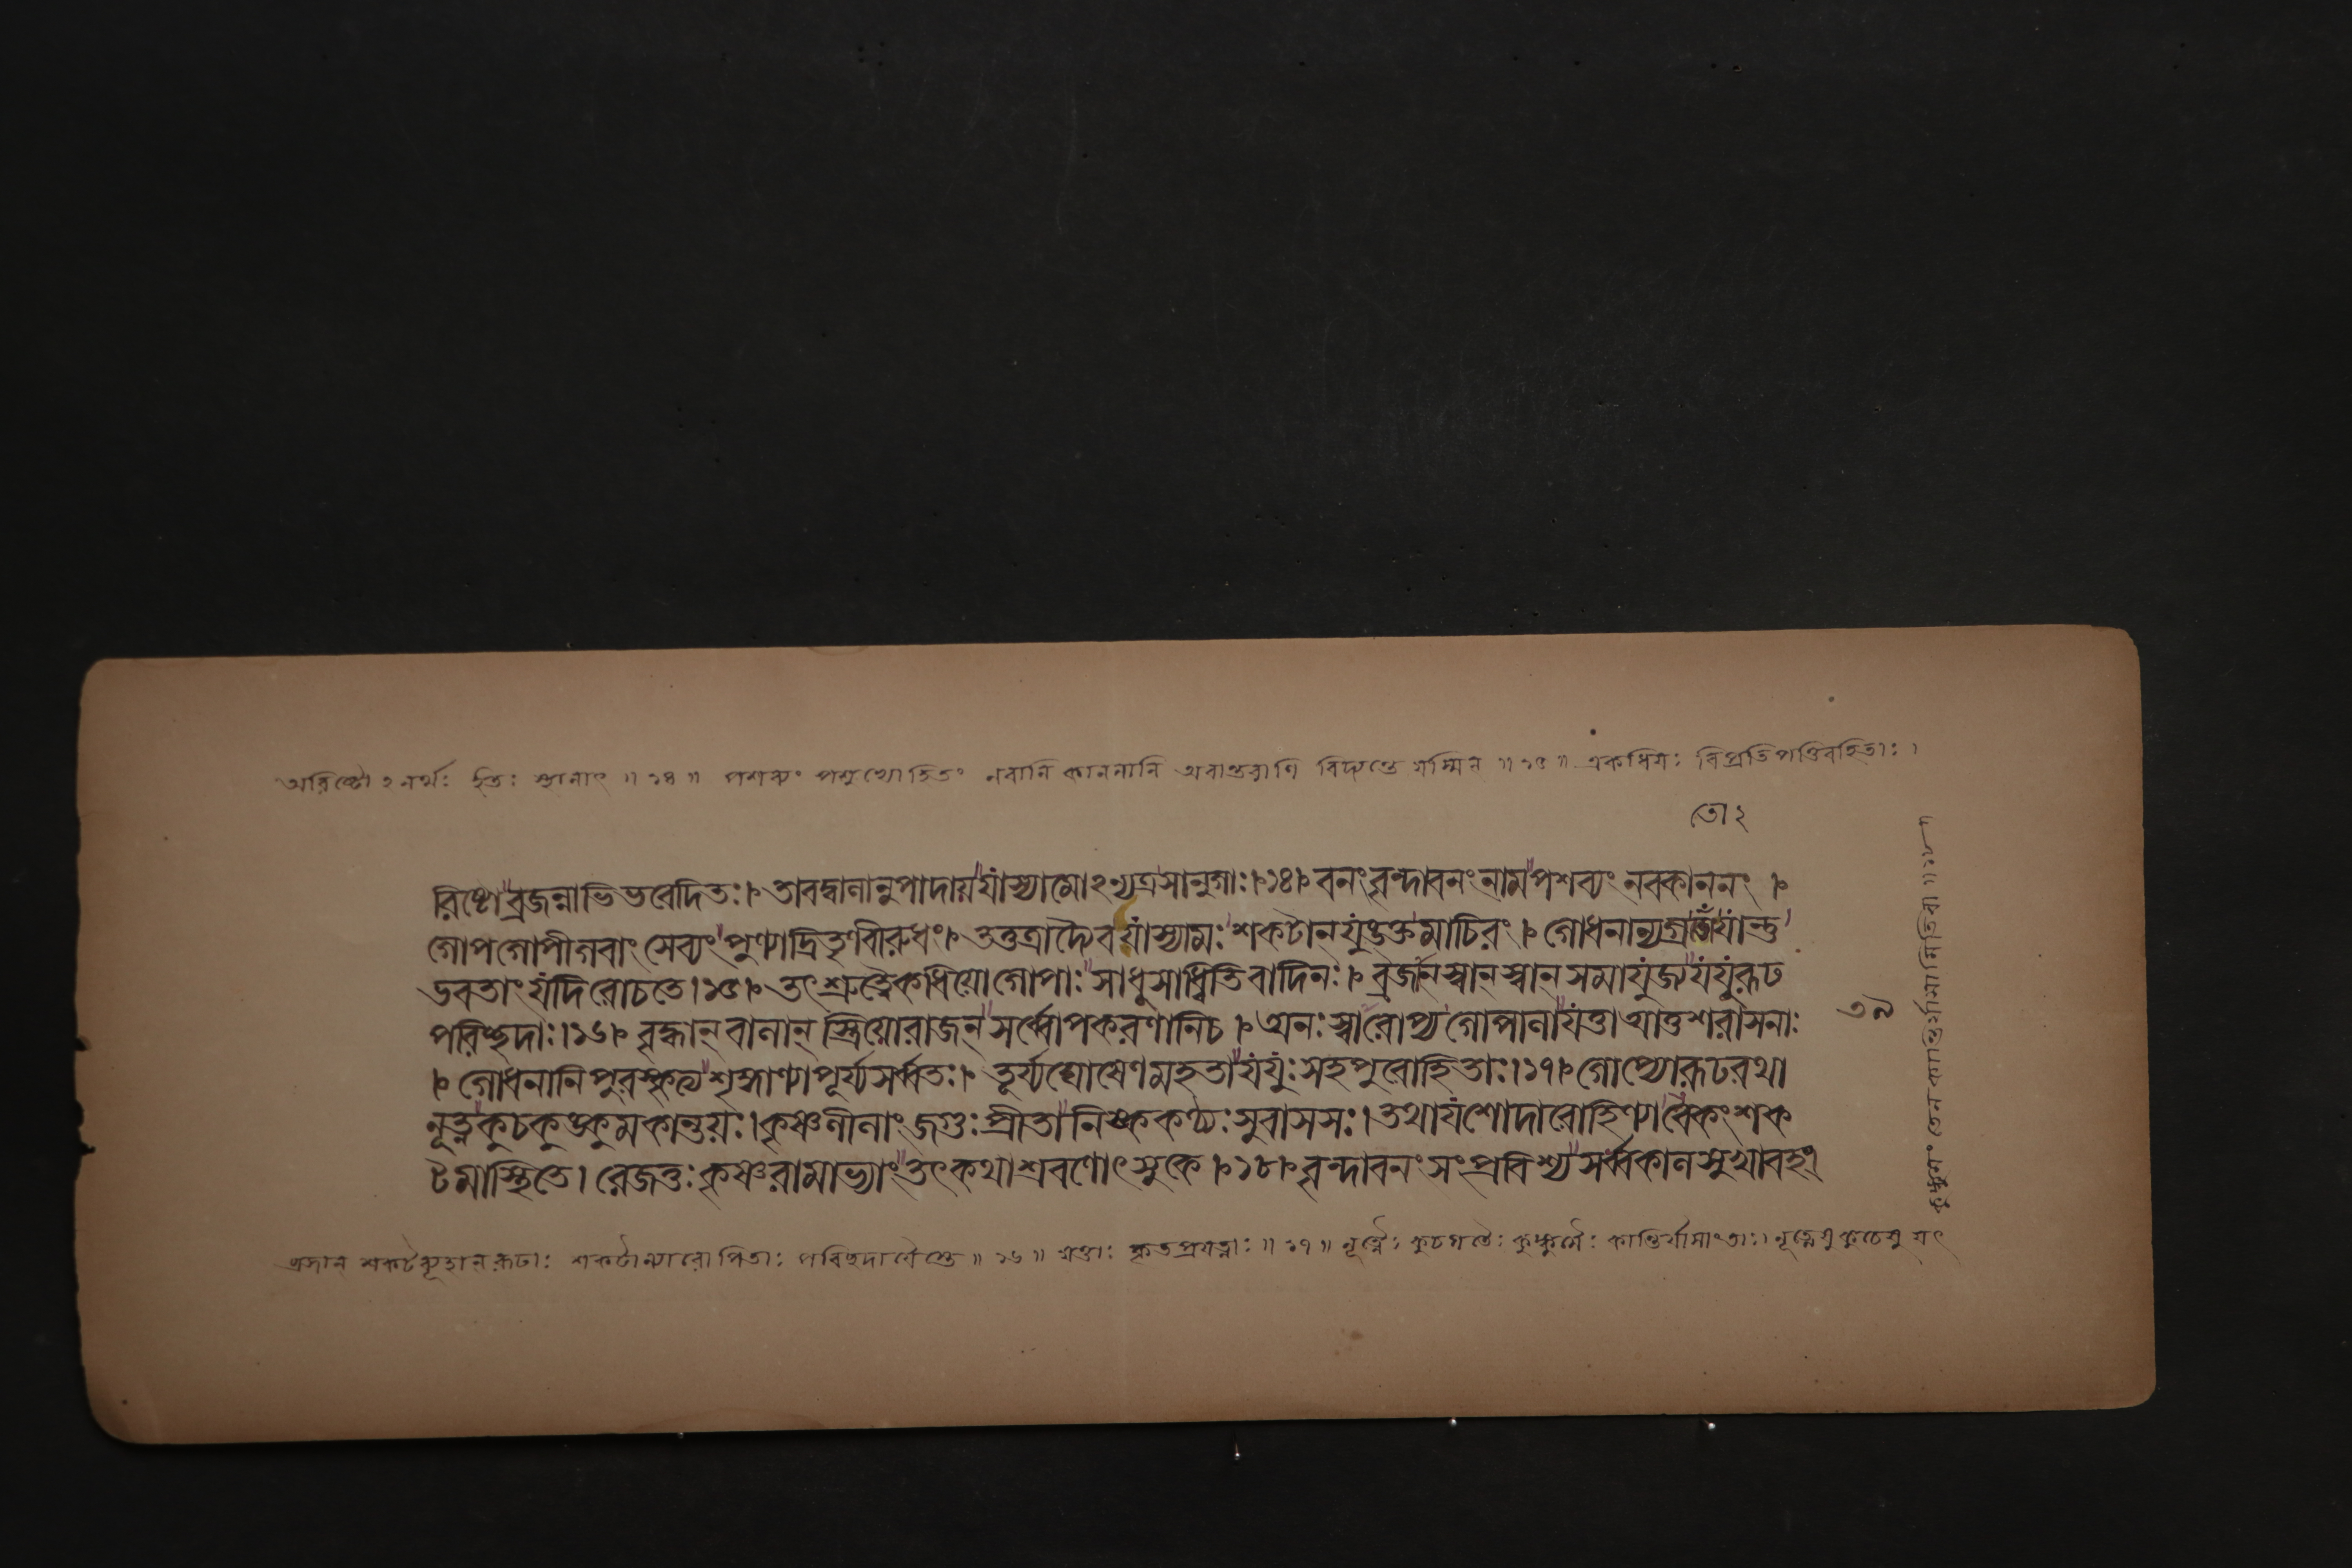 অরিষ্টোঽনর্থঃ ইতঃ স্থানাৎ ॥ ১৪ ॥ পশব্যং পশুভ্যোহিতং নবানি কাননানি অবান্তরাণি বিদ্যন্তে যস্মিন্ ॥ ১৫ ॥ একধিয়ঃ বিপ্রতিপত্তিরহিতাঃ ।
তো ২
রিষ্টোব্রজন্নাভিভবেদিতঃ। তাবদ্বালানুপাদায়যাস্যামোঽন্যত্রসানুগাঃ।১৪। বনংবৃন্দাবনংনামপশব্যংনবকাননং ।
গোপগোপীগবাংসেব্যংপুণ্যাদ্রিতৃণবীরুধং। তত্তত্রাদ্যৈবযাস্যামঃশকটানযুঙ্ক্তমাচিরং । গোধনান্যগ্রতোঁযান্তু
ভবতাংযদিরোচতে।১৫। তৎশ্রুত্বৈকধিয়োগোপাঃসাধুসাধ্বিতিবাদিনঃ। ব্রজান্স্বান্স্বান্সমাযুজ্যযযূরূঢ
পরিচ্ছদাঃ।১৬। বৃদ্ধান্বালান্স্ত্রিয়োরাজন্সর্ব্বোপকরণানিচ । অনঃস্বারোপ্যগোপালাযত্তাআত্তশরাসনাঃ
। গোধনানিপুরস্কৃত্যশৃঙ্গাণ্যাপূর্য্যসর্ব্বতঃ। তূর্য্যঘোষেণমহতাযযুঃসহপুরোহিতাঃ।১৭। গোপ্যোরূঢরথা
নূত্নকুচকুঙ্কুমকান্তয়ঃ।কৃষ্ণলীলাংজগুঃপ্রীতানিষ্ককণ্ঠ্যঃসুবাসসঃ। তথাযশোদারোহিণ্যাবেকংশক
টমাস্থিতে। রেজতুঃকৃষ্ণরামাভ্যাংতৎকথাশ্রবণোৎসুকে।১৮। বৃন্দাবনংসংপ্রবিশ্যসর্ব্বকালসুখাবহং
৩৯
ব্রজান্ শকটব্যূহান্ রূঢাঃ শকটান্যারোপিতাঃ পরিচ্ছদাযৈস্তে ॥ ১৬ ॥ যত্তাঃ কৃতপ্রযত্নাঃ ॥ ১৭ ॥ নূত্নৈঃ কুচগতৈঃ কুঙ্কুমৈঃ কান্তির্যাসাংতাঃ। নূত্নেষু কুচেষু যৎ
কুঙ্কুমং তেন কান্তির্যাসামিতিবা ॥ ১৮ ॥